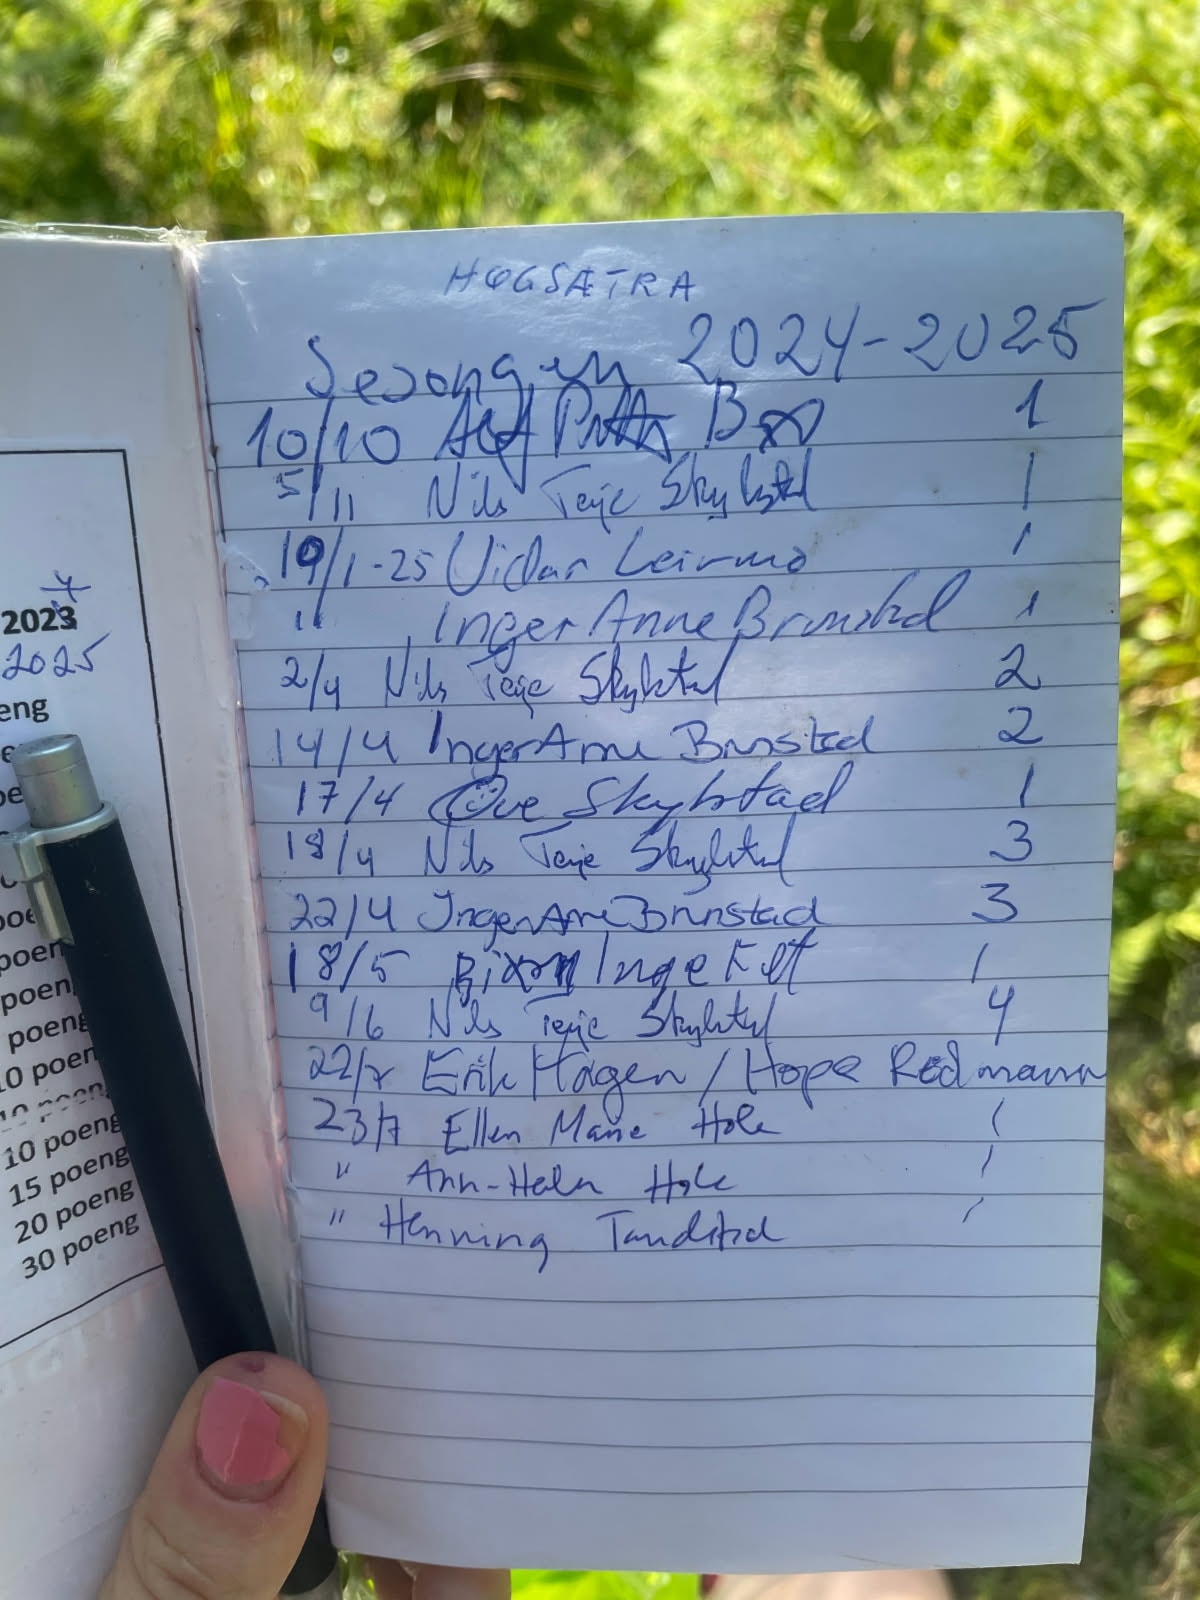 4
2023
2025
eng
poe
poen
poeng
poeng
10 poen
10 poeng
10 poeng
15 poeng
20 poeng
30 poeng
HØGSÆTRA
Sesongen 2024-2025
10/10 1
5/11 Nils Terje Skylstad 1
19/1-25 Vidar Leirmo 1
" Inger Anne Brunstad 1
2/4 Nils Terje Skylstad 2
14/4 Inger Anne Brunstad 2
17/4 Ove Skylstad 1
18/4 Nils Terje Skylstad 3
22/4 Inger Anne Brunstad 3
18/5 Bjørn Inge 1
9/6 Nils Terje Skylstad 4
22/7 Erik Hagen / Hope Redmann
23/7 Ellen Marie Hole 1
" Ann-Helen Hole 1
" Henning Tandstad 1